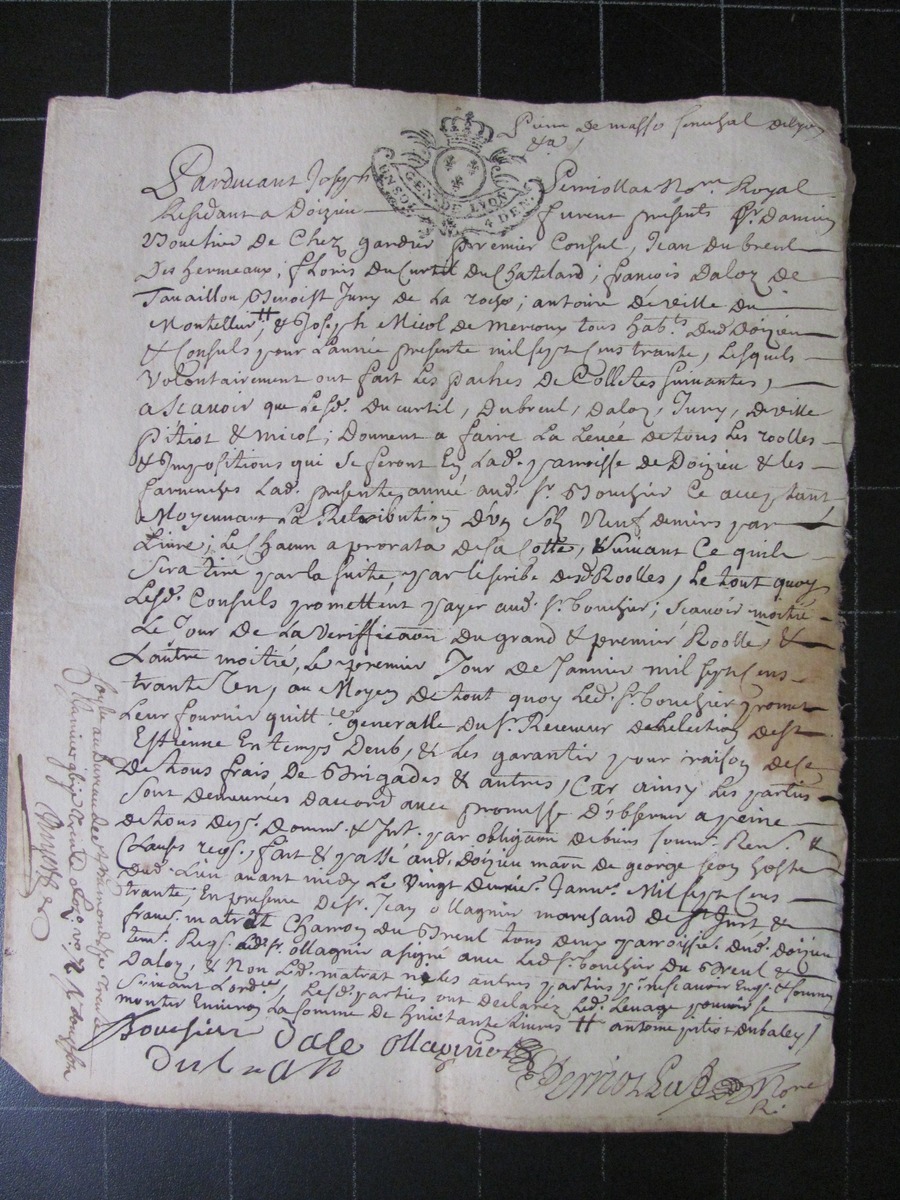 Pierre de masso senechal de lyon
&a
GEN. DE LYON
EN SOL DEN.
Pardevant Joseph Perriollat No.re Royal
Residant a Doizieu furent presents Sr. Damien
Bouchier de Chez gardier premier Consul, Jean du breul
Des hermeaux, floris Ducurtil du Chatelard; françois Daloz de
Tavaillon, Benoist Jury de La roche; antoine déville du
Montellier, # & Joseph Micol de Mercoux tous hab.ts dud. Doizieu
& Consuls pour L'année presente mil sept cens trante, Lesquels
Volontairement ont fait les paches de Colletes suivantes,
ascavoir que Lesd. Ducurtil, Dubreul, Daloz, Jury, deville
pitiot & micol; Donnent a faire La Levée de tous Les roolles
& Impositions qui se feront En Lad. parroisse de Doizieu & les
farnenches Lad. presente année aud. Sr. Bouchier Ce acceptant
Moyennant La Retribution d'un Sol Neuf deniers par
Livre; Le Chacun a prorata de sa Cotte, Suivant Ce quile
sera tiré par la suite, par le scribe desd. Roolles, Le tout quoy
Lesd. Consuls promettent payer aud. Sr. bouchier; scavoir moitié
Le Jour De La verifficaon du grand & premier Roolle, &
L'autre moitié, Le premier Jour de Janvier mil sept cens
trante Un, au Moyen de tout quoy Led. Sr. bouchier promet
Leur fournir quitt.ce generalle du Sr. Receveur de L'election de St
Estienne En temps Deub, & Les garantir pour raison de Ce
De tous frais De Brigades & autres, Car ainsy Les parties
sont demeurées d'accord avec promesse D'observer a peine
de tous desp. Domm. & Int. par obligaon de biens soum. Ren. &
Clauses reqs., fait & passé aud. Doizieu maon de george hoste
dud. Lieu avant midy Le Vingt Janv. Mil sept cens
trante, En presence de Sr. Jean ollagnier marchand de St Just &
franc. matrat Charron du Breul tous deux parroisse dud. Doizieu
tem. Reqs. Led. Sr. ollagnier a signé avec Led. Sr. bouchier Du Breul &
Daloz, & Non Led. matrat ni les autres parties p. ne scavoir Enqs. & somm.
Suivant Lord.ce, Lesd. parties ont declarez Led. Levage pouvoir se
monter Environ La somme de huictante Livres # antoine pitiot dubaley /
Bouchier Dale ollagnier
Dubreul
Perriollat No.re
R.